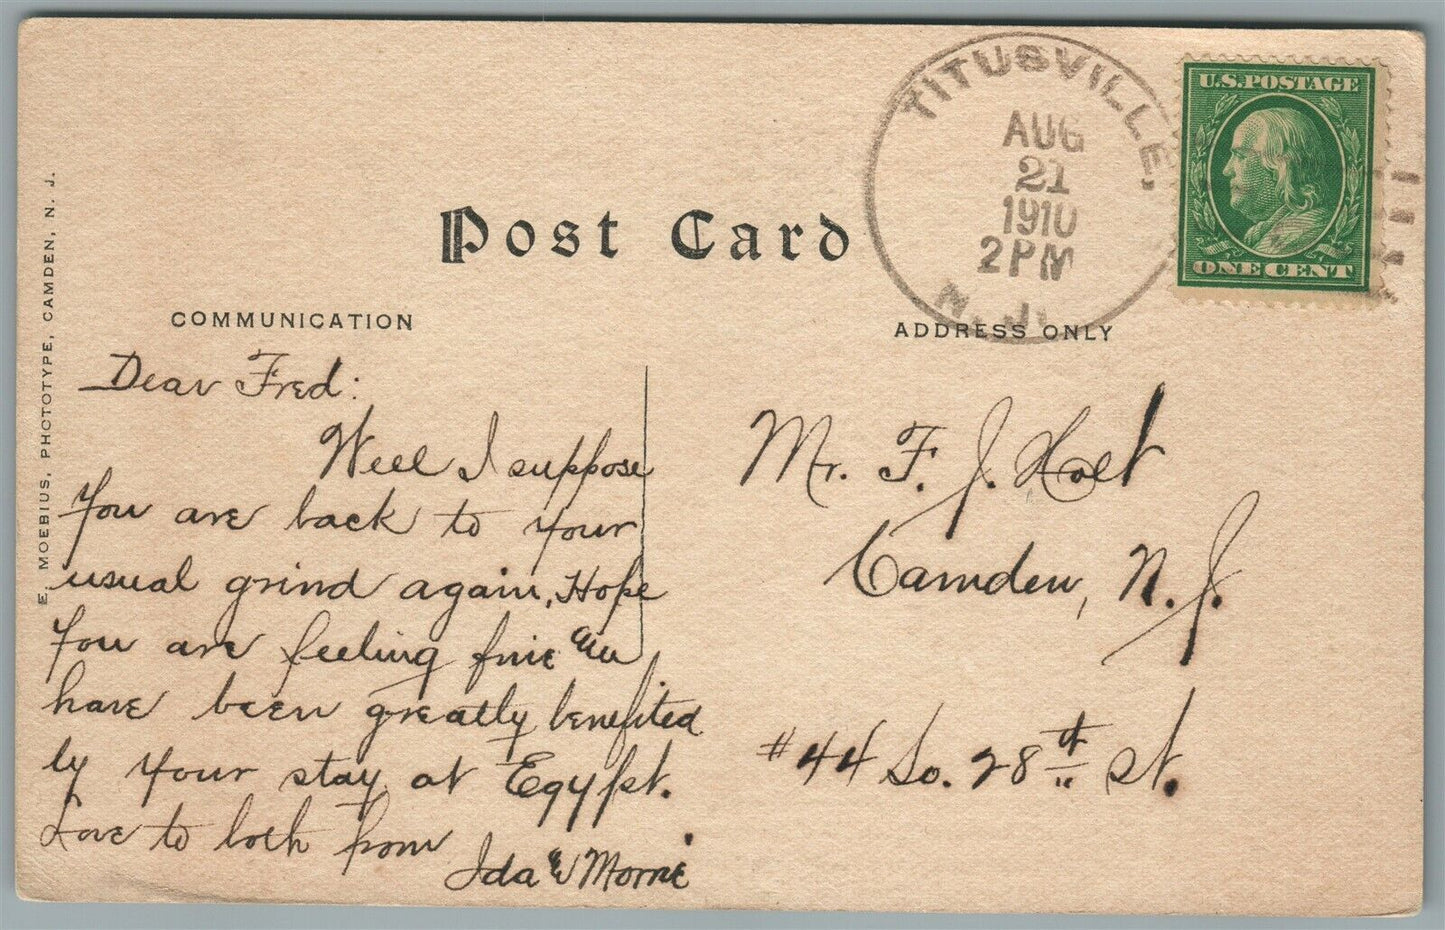 TITUSVILLE,
AUG
21
1910
2 PM
N. J.
U.S. POSTAGE
ONE CENT
Post Card
COMMUNICATION
ADDRESS ONLY
E. MOEBIUS, PHOTOTYPE, CAMDEN, N. J.
Dear Fred:
Well I suppose
you are back to your
usual grind again. Hope
you are feeling fine &
have been greatly benefited
by your stay at Egypt.
Love to both from
Ida & Morrie
Mr. F. J. Holt
Camden, N. J.
#44 So. 28th st.